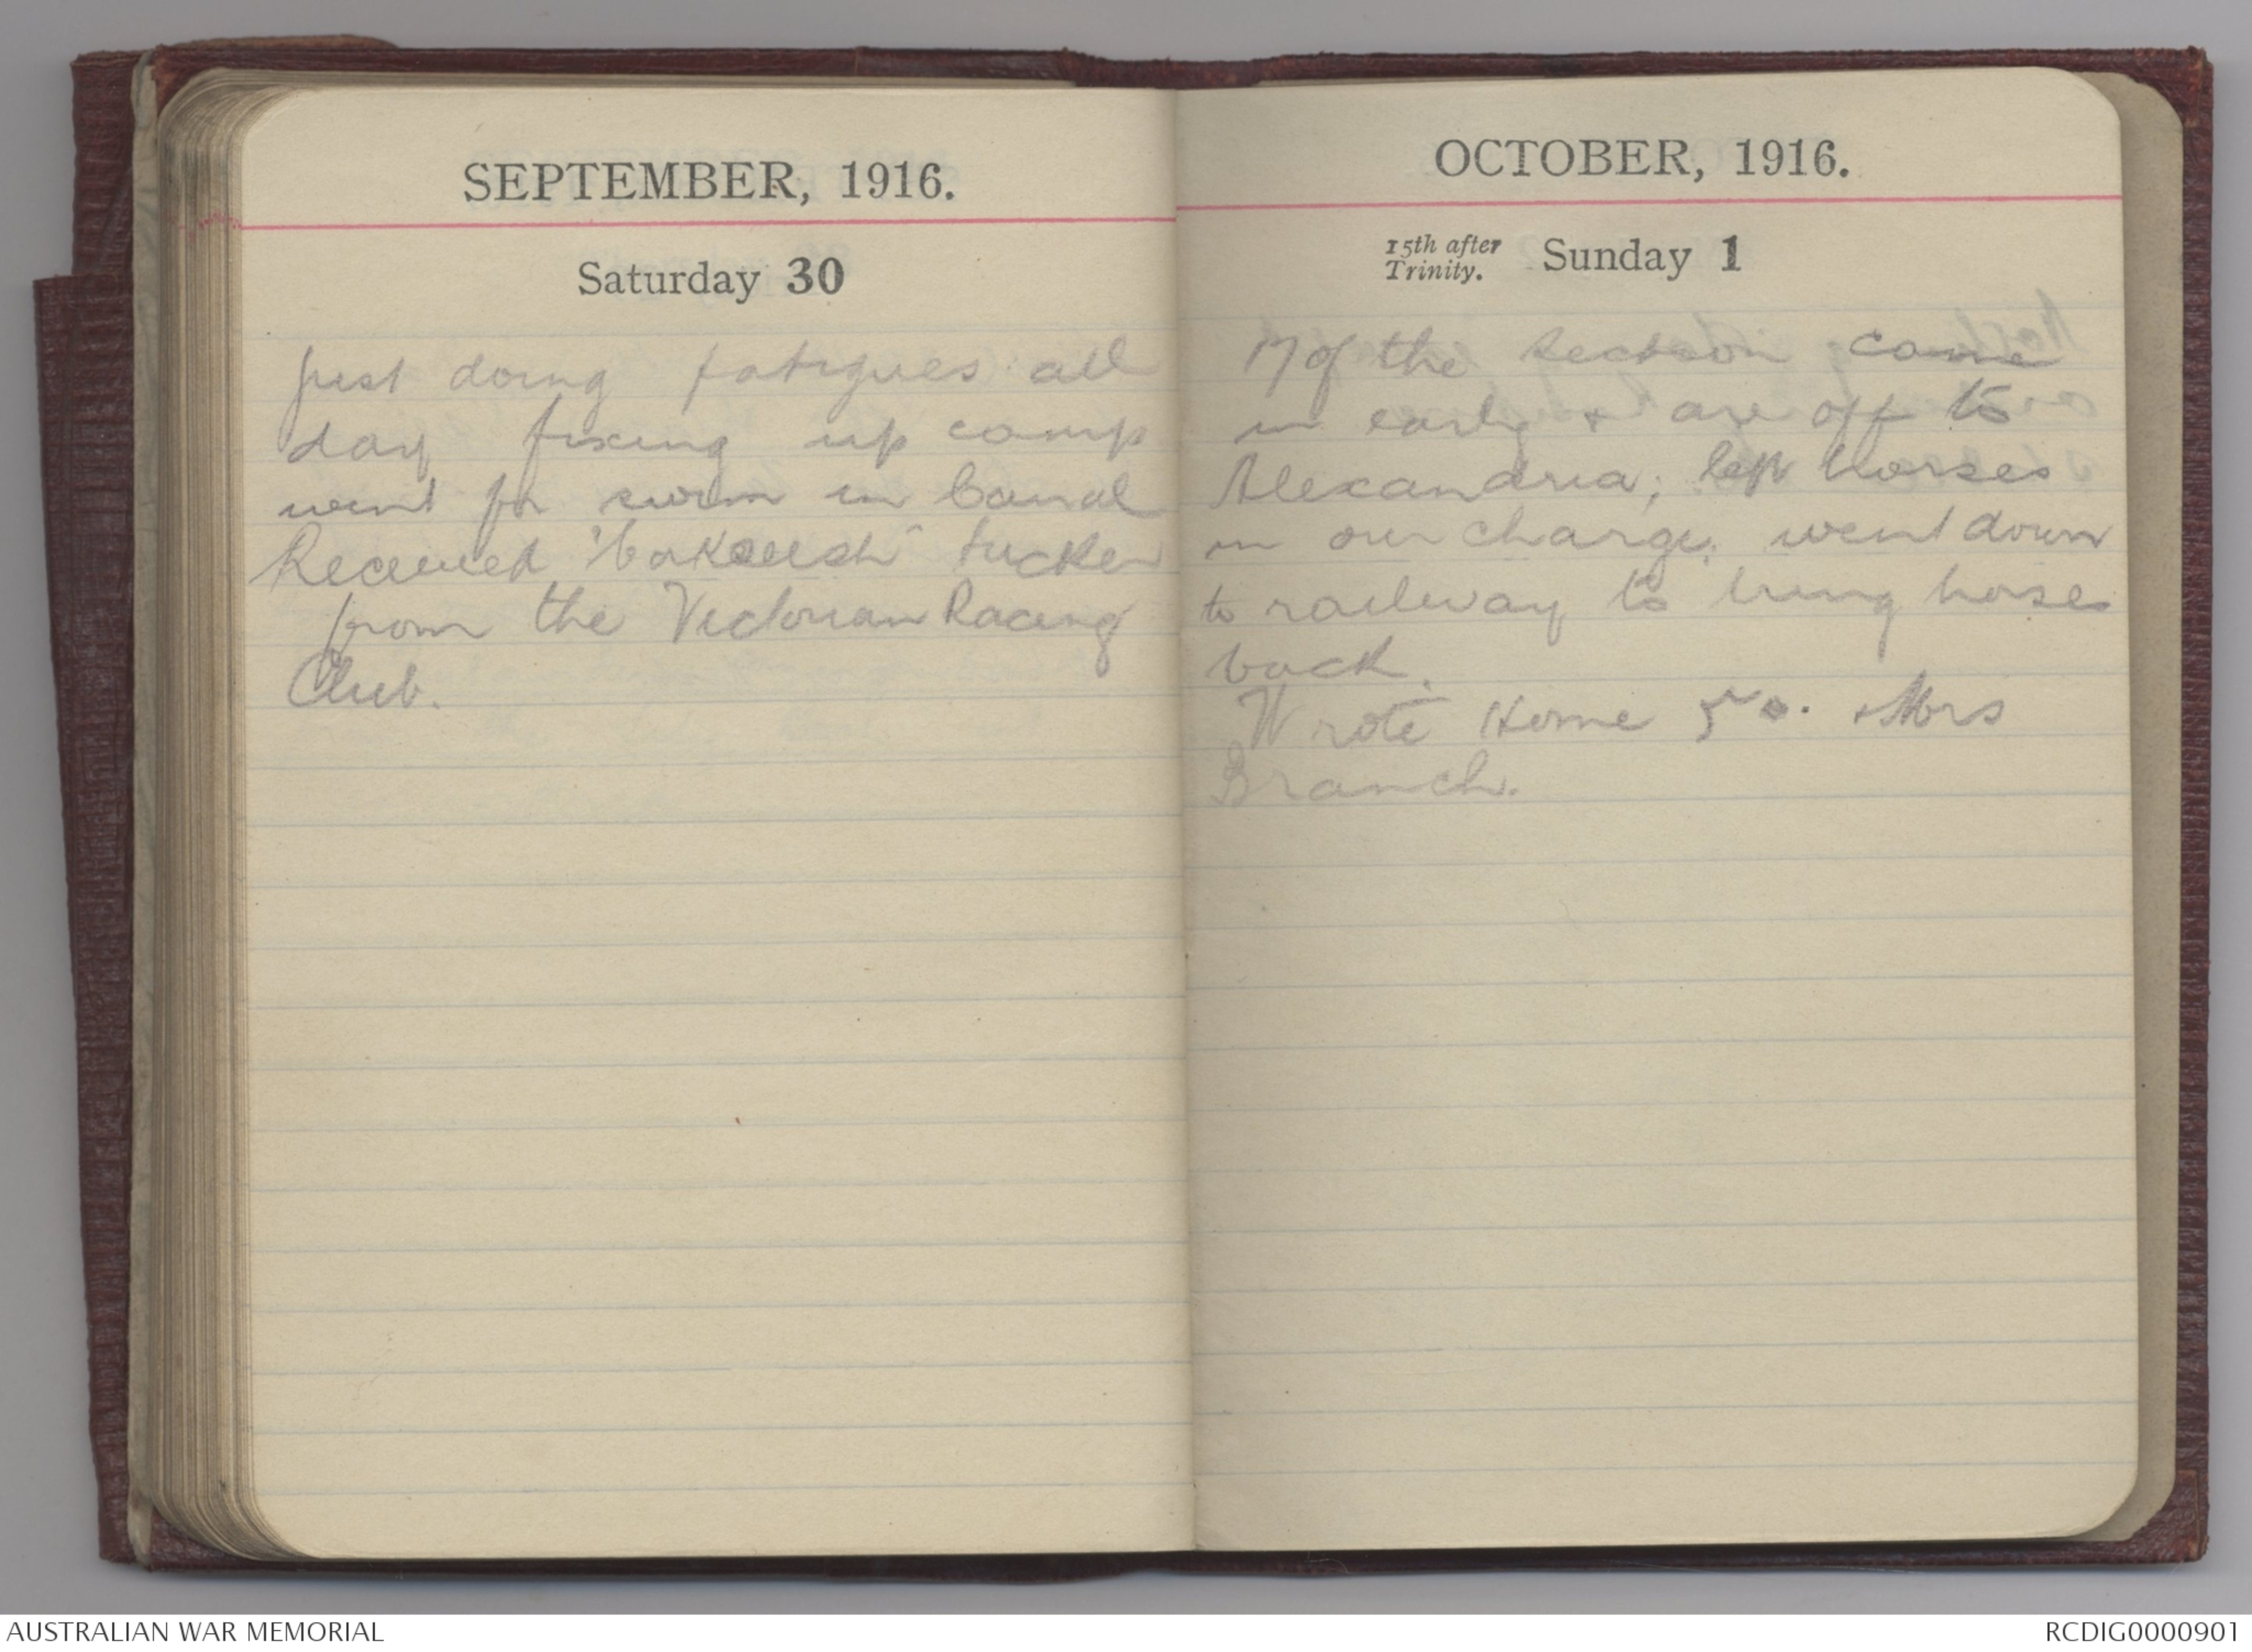 SEPTEMBER, 1916.
Saturday 30
Just doing fatigues all
day fixing up camp
went for swim in Canal
Received "bakseesh" tucker
from the Victorian Racing
Club.
OCTOBER, 1916.
15th after Trinity. Sunday 1
17 of the section came
in early & are off to
Alexandria; left horses
in our charge, went down
to railway to bring horses
back.
Wrote Home 50. & Mrs
Branch.
AUSTRALIAN WAR MEMORIAL
RCDIG0000901